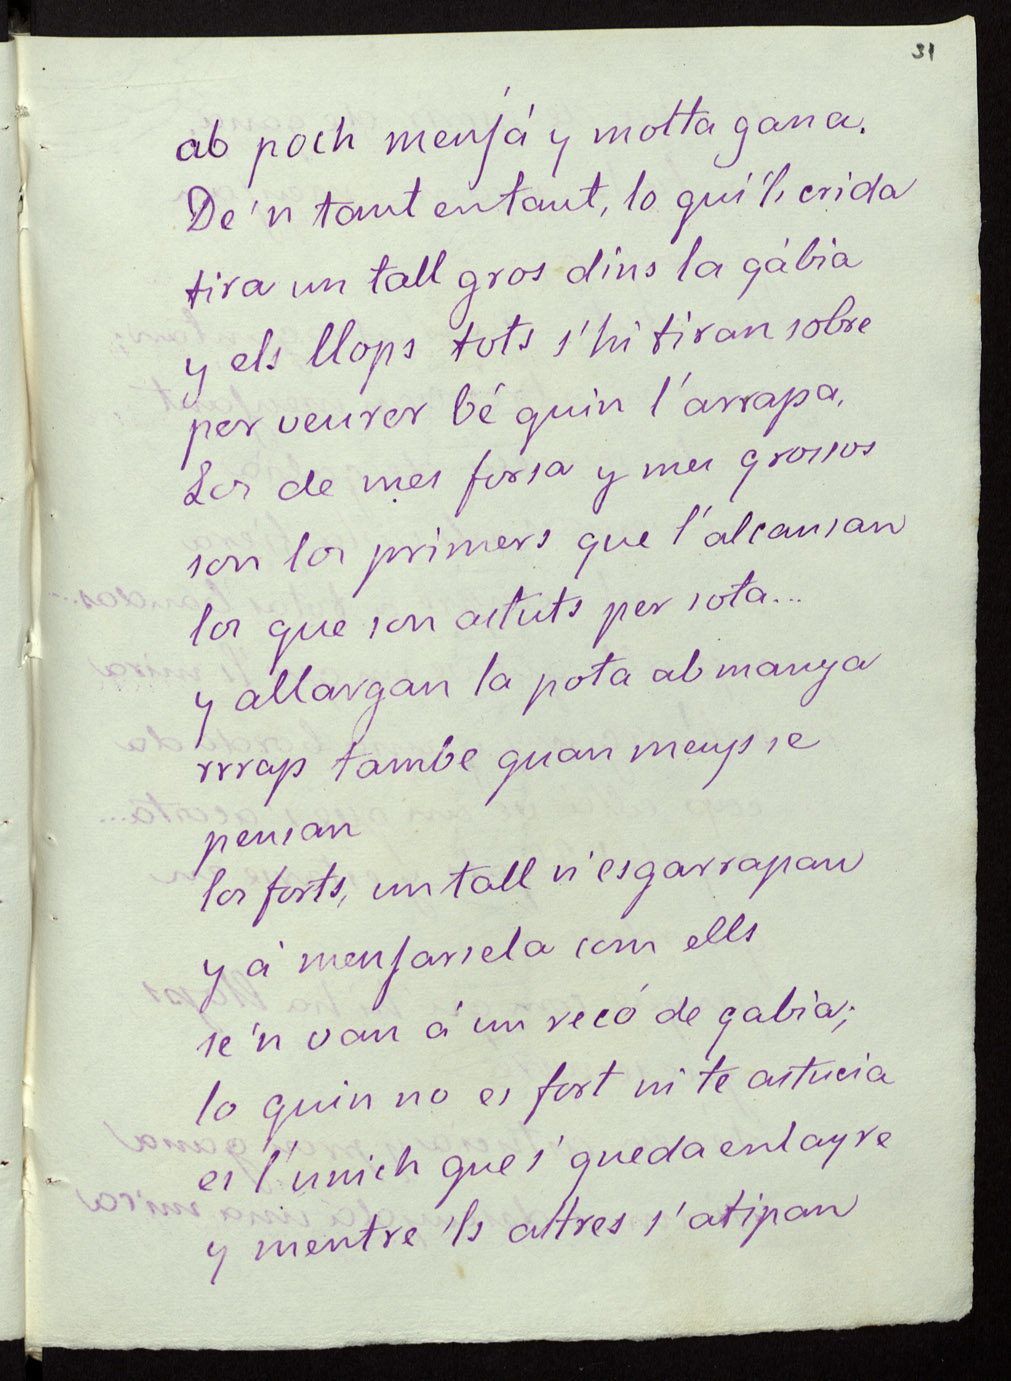 31
ab poch menjá y molta gana.
De 'n tant en tant, lo qui 'ls crida
tira un tall gros dins la gábia
y els llops tots s' hi tiran sobre
per veurer bé quin l' arrapa.
Los de mes forsa y mes grossos
son los primers que l' alcansan
los que son astuts per sota...
y allargan la pota ab manya
rrrap tambe quan menys se
pensan
los forts, un tall n' esgarrapan
y á menjarsela com ells
se 'n van á un recó de gabia;
lo quin no es fort ni te astucia
es l' unich que s' queda enlayre
y mentre 'ls altres s' atipan